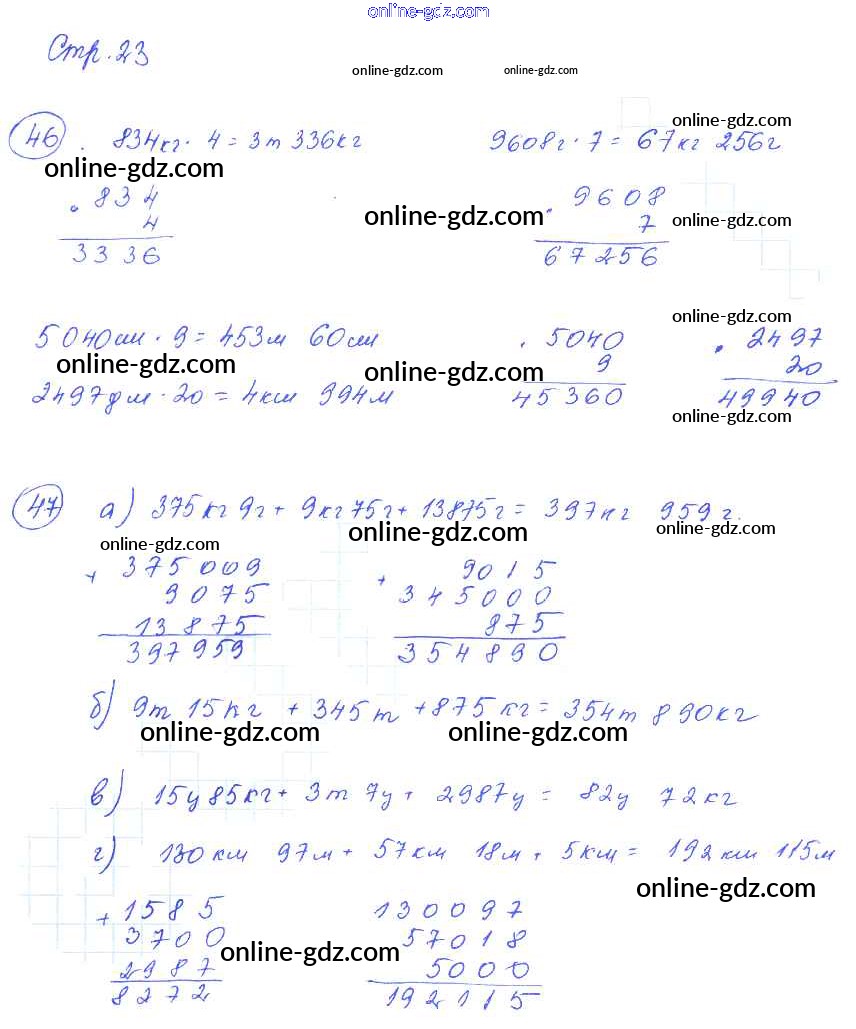 online-gdz.com
Стр. 23
online-gdz.com online-gdz.com
online-gdz.com
46. 834кг · 4 = 3т 336кг 9608г · 7 = 67кг 256г
online-gdz.com
· 834 · 9608
online-gdz.com online-gdz.com
4 7
3336 67256
online-gdz.com
5040см · 9 = 453м 60см · 5040 · 2497
online-gdz.com online-gdz.com 9 20
2497дм · 20 = 4км 994м 45360 49940
online-gdz.com
47 а) 375кг 9г + 9кг 75г + 13875г = 397кг 959г.
online-gdz.com online-gdz.com online-gdz.com
+ 375009 + 9015
9075 345000
13875 875
397959 354890
б) 9т 15кг + 345т + 875кг = 354т 890кг
online-gdz.com online-gdz.com
в) 15ц 85кг + 3т 7ц + 2987ц = 82ц 72кг
г) 130км 97м + 57км 18м + 5км = 192км 115м
online-gdz.com
+ 1585 130097
3700 57018
online-gdz.com online-gdz.com
2987 5000
8272 192115